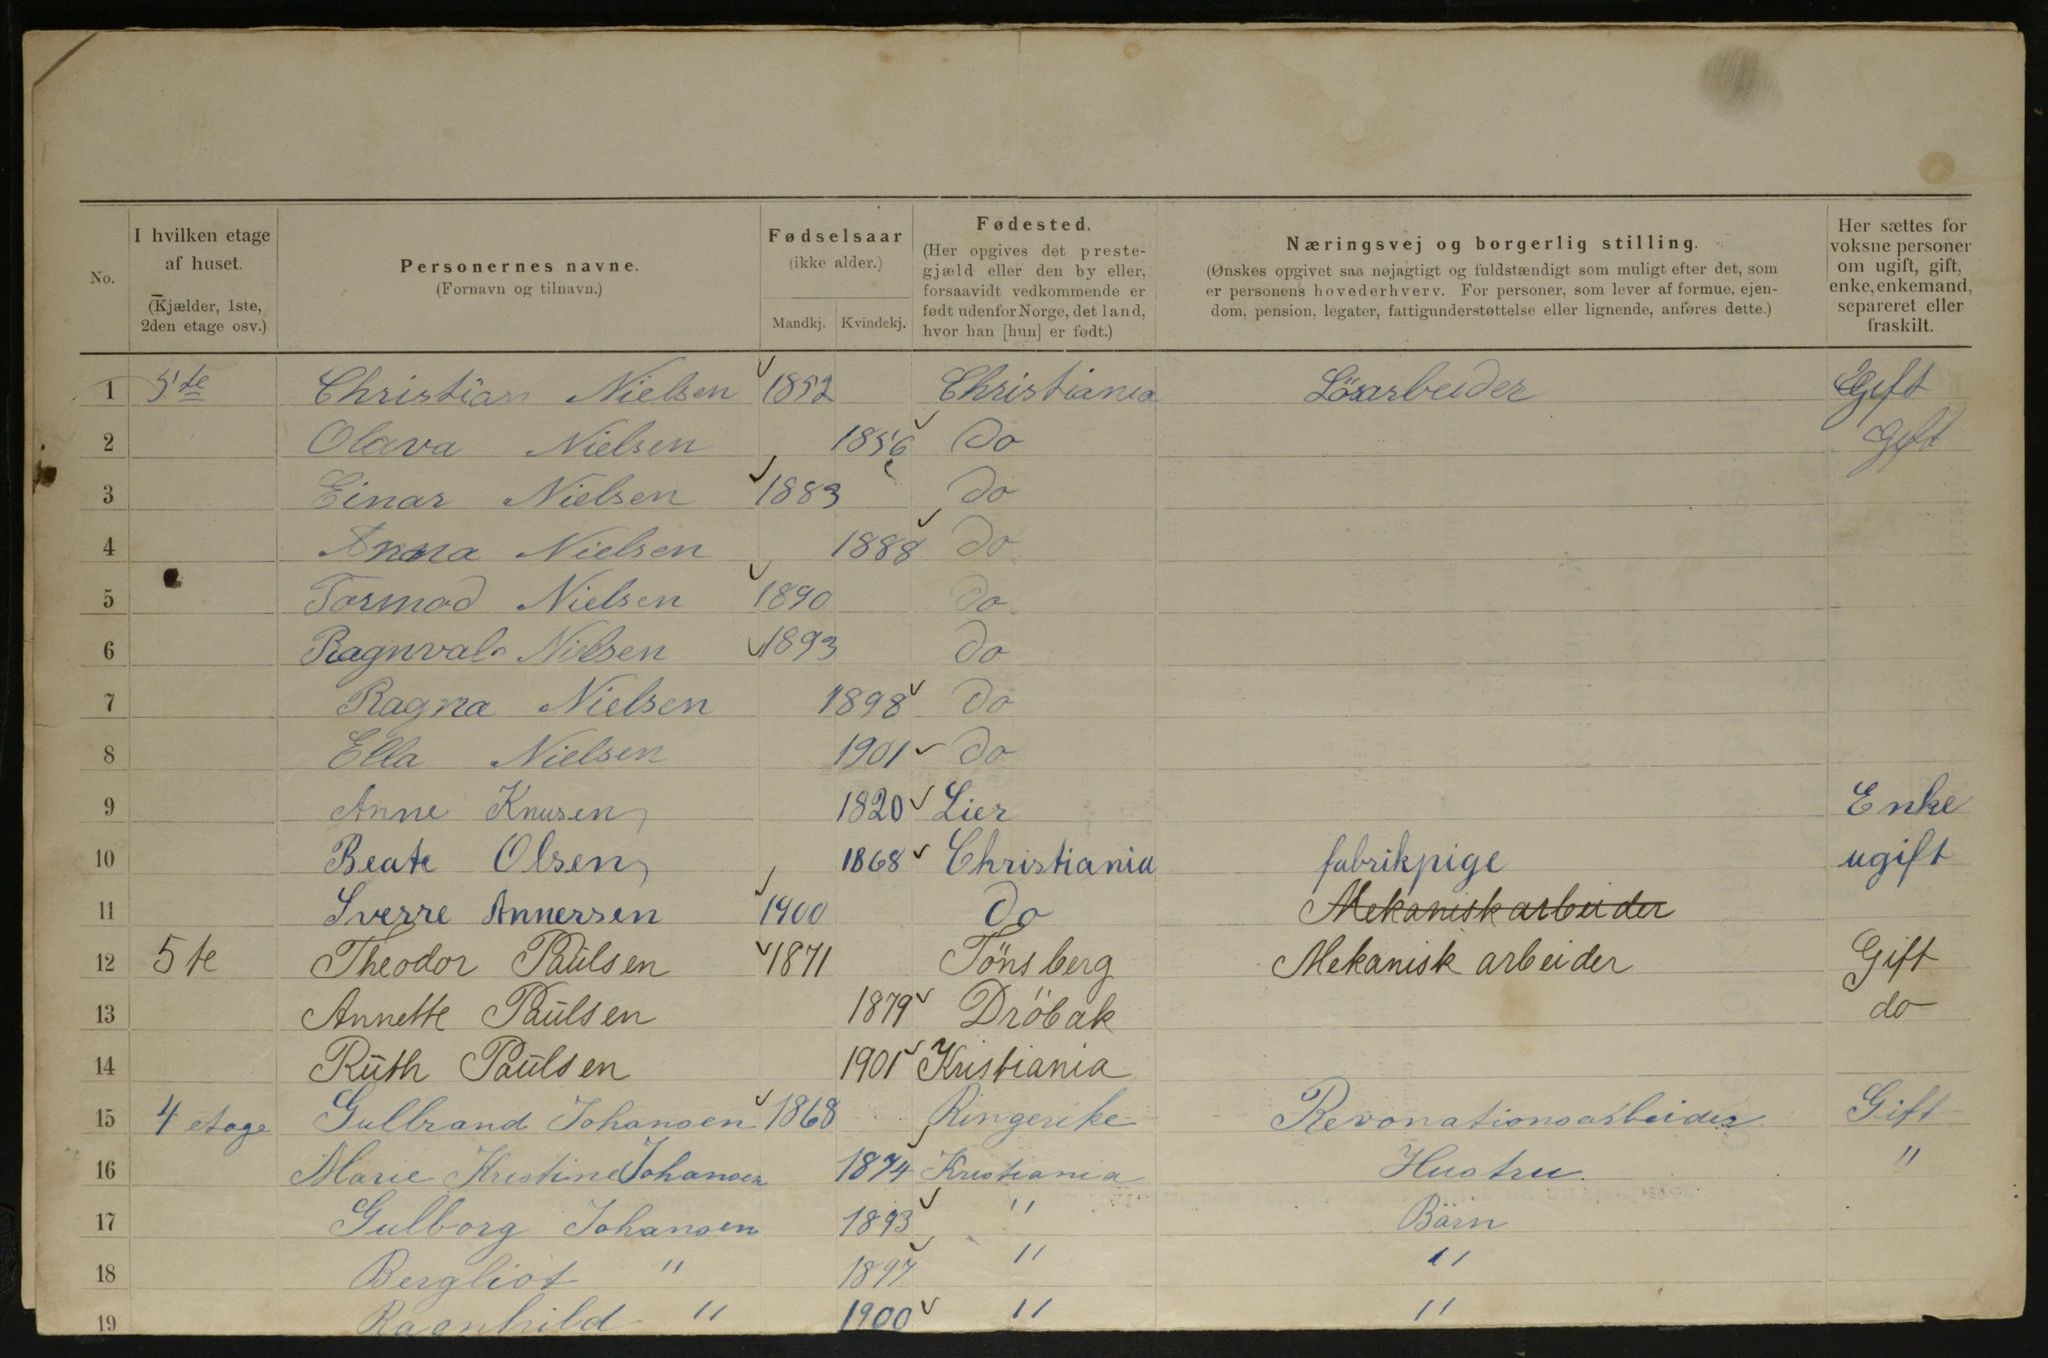 No.
I hvilken etage
af huset.
(Kjælder, 1ste,
2den etage osv.)
Personernes navne.
(Fornavn og tilnavn.)
Fødselsaar
(ikke alder.)
Mandkj. Kvindekj.
Fødested.
(Her opgives det preste-
gjæld eller den by eller,
forsaavidt vedkommende er
født udenfor Norge, det land,
hvor han [hun] er født.)
Næringsvej og borgerlig stilling.
(Ønskes opgivet saa nøjagtigt og fuldstændigt som muligt efter det, som
er personens hovederhverv. For personer, som lever af formue, ejen-
dom, pension, legater, fattigunderstøttelse eller lignende, anføres dette.)
Her sættes for
voksne personer
om ugift, gift,
enke, enkemand,
separeret eller
fraskilt.
1 5te Christian Nielsen 1852 Christiania Lösarbeider Gift
2 Olava Nielsen 1856 Do Gift
3 Einar Nielsen 1883 Do
4 Anna Nielsen 1888 Do
5 Tormod Nielsen 1890 Do
6 Ragnvald Nielsen 1893 Do
7 Ragna Nielsen 1898 Do
8 Ella Nielsen 1901 Do
9 Anne Knusen 1820 Lier Enke
10 Beate Olsen 1868 Christiania fabrikpige ugift
11 Sverre Annersen 1900 Do Mekaniskarbeider
12 5te Theodor Paulsen 1871 Tönsberg Mekanisk arbeider Gift
13 Annette Paulsen 1879 Dröbak do
14 Ruth Paulsen 1901 Kristiania
15 4 etage Gulbrand Johansen 1868 Ringerike Revonationsarbeider Gift
16 Marie Kristine Johansen 1874 Kristiania Hustru "
17 Gulborg Johansen 1893 " Börn
18 Bergliot " 1897 " "
19 Ragnhild " 1900 " "